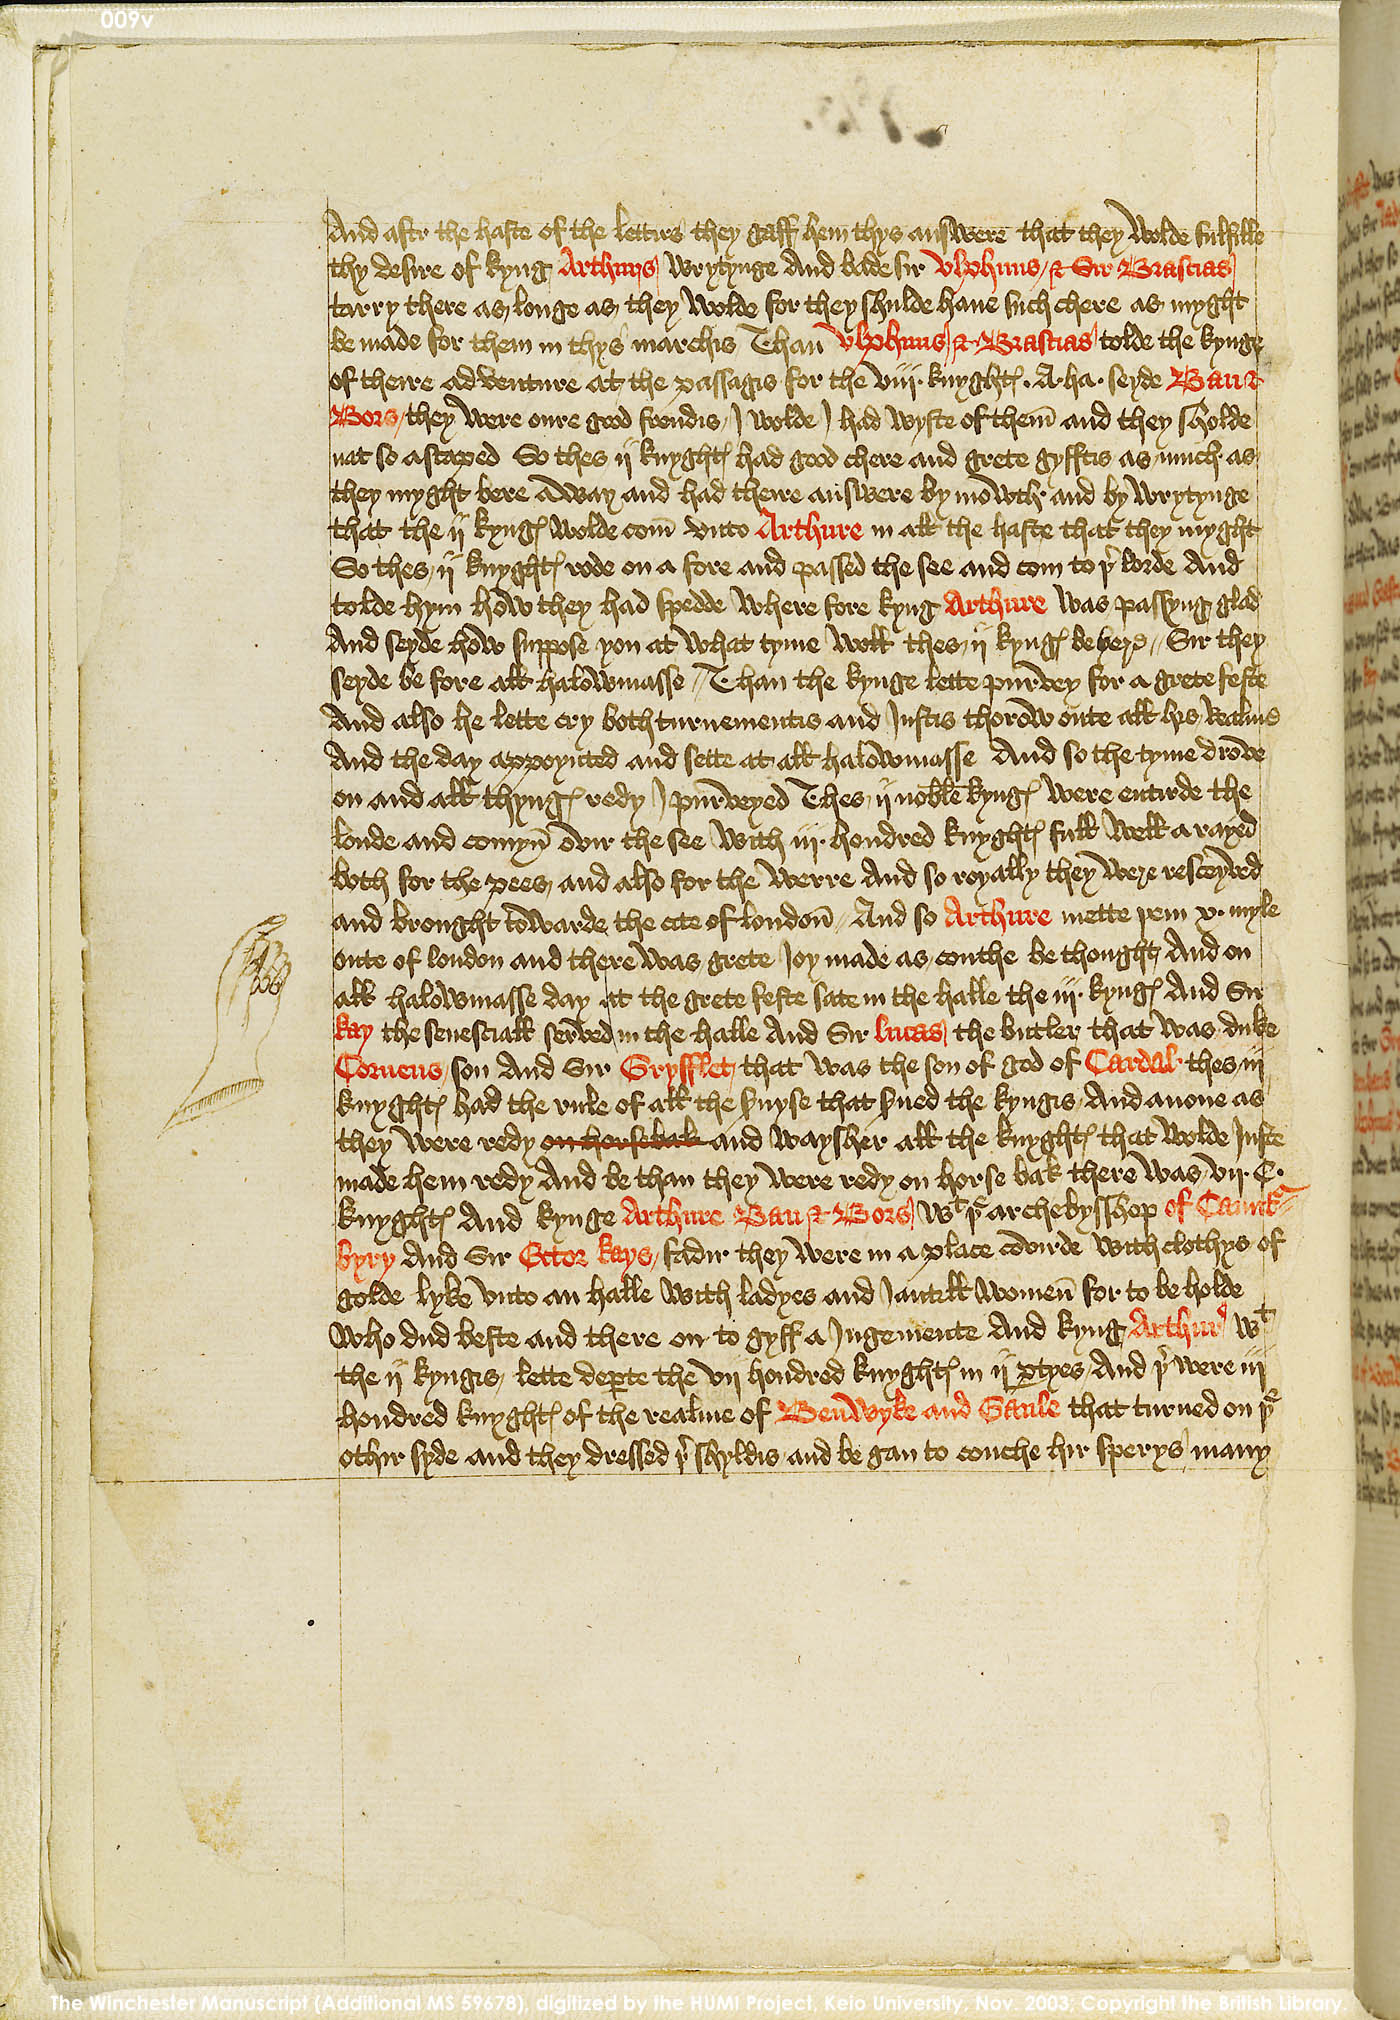 009v
And aftir the haste of the lettirs they gaff hem thys answere that they wolde fulfille
thy desire of kyng Arthurs wrytynge And bade sir Vlphuns & Sir Brascias
tarry there as longe as they wolde for they shulde haue such chere as myght
be made for them in thys marchis Than Vlphuns & Brascias tolde the kynge
of theire adventure at the passagis for the viij. knyghtꝭ. A. ha. seyde Ban &
Bors they were oure good frendis, I wolde I had wyste of theim̄ and they sholde
nat so ascaped So thes ij knyghtꝭ had good chere and grete gyfftis as much as
they myght bere away and had theire answere by mowth and by wrytynge
that the ij kyngꝭ wolde com̄ vnto Arthure in all the haste that they myght
So thes ij knyghtꝭ rode on a fore and passed the see and com to þr lorde And
tolde hym how they had spedde where fore kyng Arthure was passyng glad
And seyde how suppose you at what tyme woll thes ij kyngꝭ be here // Sir they
seyde be fore all halowmasse // Than the kynge lette purvey for a grete feste
And also he lette cry both turnementis and Justis thorow oute all his realme
And the day appoynted and sette at all halowmasse And so the tyme drove
on and all thyngꝭ redy I purveyed Thes ij noble kyngꝭ were entirde the
londe and comyn̄ ovir the see with iij. hondred knyghtꝭ full well arayed
both for the pees and also for the werre And so royally they were resceyved
and brought towarde the cite of london̄ // And so Arthure mette þem x. myle
oute of london and there was grete Joy made as couthe be thought And on
all halowmasse day at the grete feste sate in the halle the iij. kyngꝭ And Sir
kay the senesciall served in the halle And Sir lucas the butler that was duke
Cornens son And Sir Gryfflet that was the son of god of Cardal thes iij
knyghtꝭ had the rule of all the suyse that sued the kyngis And anone as
they were redy on horsebak and wayshen all the knyghtꝭ that wolde Juste
made hem redy And be than they were redy on horse bak there was vij. C.
knyghtꝭ And kynge Arthure Ban & Bors wt þe archebysshop of Caunt
byry And Sir Ector kays fadir they were in a place covirde with clothys of
golde lyke vnto an halle with ladyes and Jantill women̄ for to be holde
who dud beste and there on to gyff a Jugemente And kyng Arthur wt
the ij kyngis, lette departe the vij hondred knyghtꝭ in ij ꝑtyes And þr were iij
hondred knyghtꝭ of the realme of Benwyke and Gaule that turned on þe
othir syde and they dressed þr shyldis and be gan to couche hir sperys many
The Winchester Manuscript (Additional MS 59678), digitized by the HUMI Project, Keio University, Nov. 2003; Copyright the British Library.